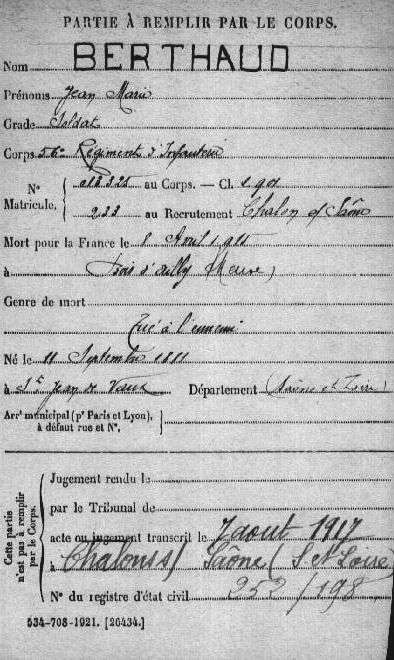 PARTIE À REMPLIR PAR LE CORPS.
Nom BERTHAUD
Prénoms Jean Marie
Grade Soldat
Corps 56e Régiment d'Infanterie
N° Matricule. { 013325 au Corps. — Cl. 1901
233 au Recrutement Chalon s/ Saône
Mort pour la France le 8 Avril 1915
à Bois d'Ailly (Meuse)
Genre de mort
Tué à l'ennemi
Né le 11 Septembre 1881
à St Jean de Vaux Département Saône et Loire
Arrt municipal (pr Paris et Lyon), à défaut rue et N°. }
Cette partie n'est pas à remplir par le Corps.
Jugement rendu le
par le Tribunal de
acte ou jugement transcrit le 7 aout 1917
à Chalon s/ Saône (S et Loire)
N° du registre d'état civil 252/198
534-708-1921. [26434.]